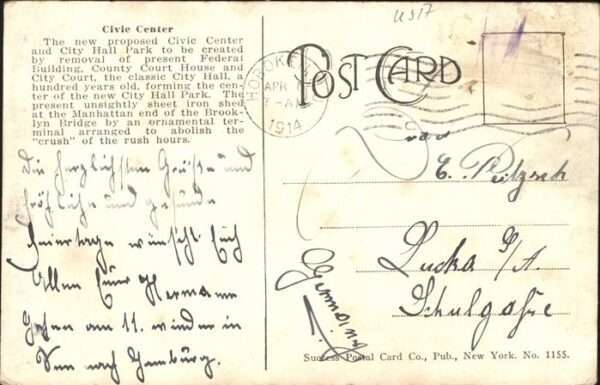 US17
Civic Center
The new proposed Civic Center
and City Hall Park to be created
by removal of present Federal
Building, County Court House and
City Court, the classic City Hall, a
hundred years old, forming the cen-
ter of the new City Hall Park. The
present unsightly sheet iron shed
at the Manhattan end of the Brook-
lyn Bridge by an ornamental ter-
minal arranged to abolish the
"crush" of the rush hours.
POST CARD
HOBOKEN
APR
7-AM
1914
Die herzlichsten Grüße und
fröhliche und gesunde
Feiertage wünscht Euch
Allen Euer Hermann
am 11. wieder in
nach Hamburg.
E.
Lucka S/A.
Schulgasse
Germany
Success Postal Card Co., Pub., New York. No. 1155.